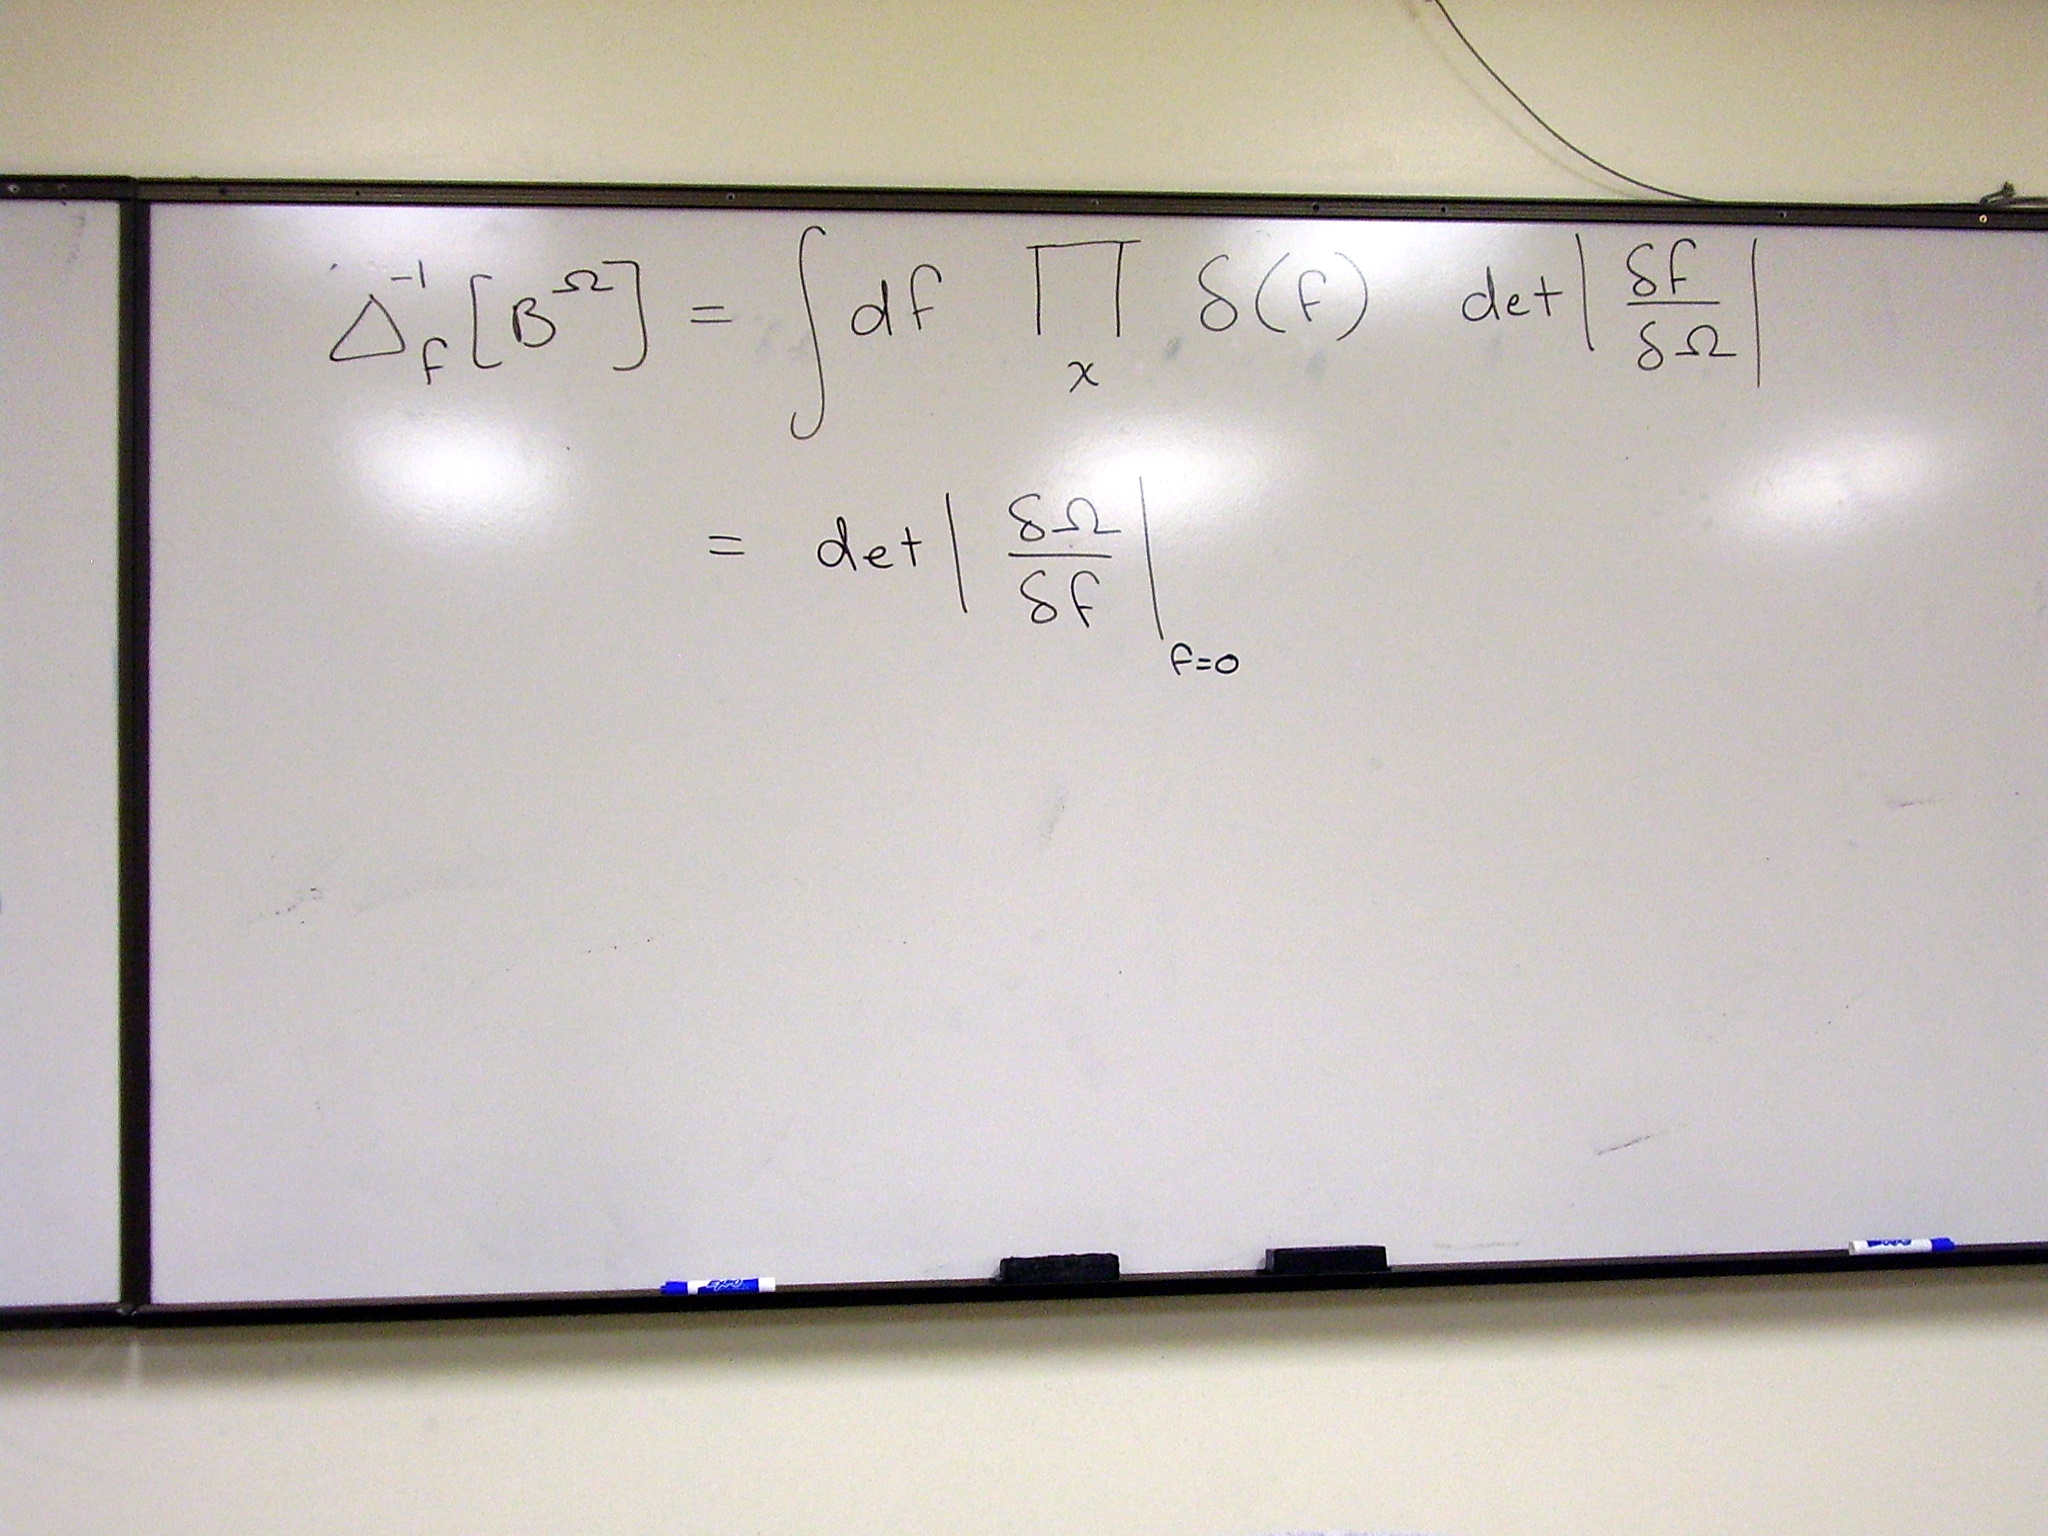 Δ_f^{-1} [B^Ω] = ∫ df ∏_x δ(f) det | δf / δΩ |
= det | δΩ / δf |_{f=0}
EXPO